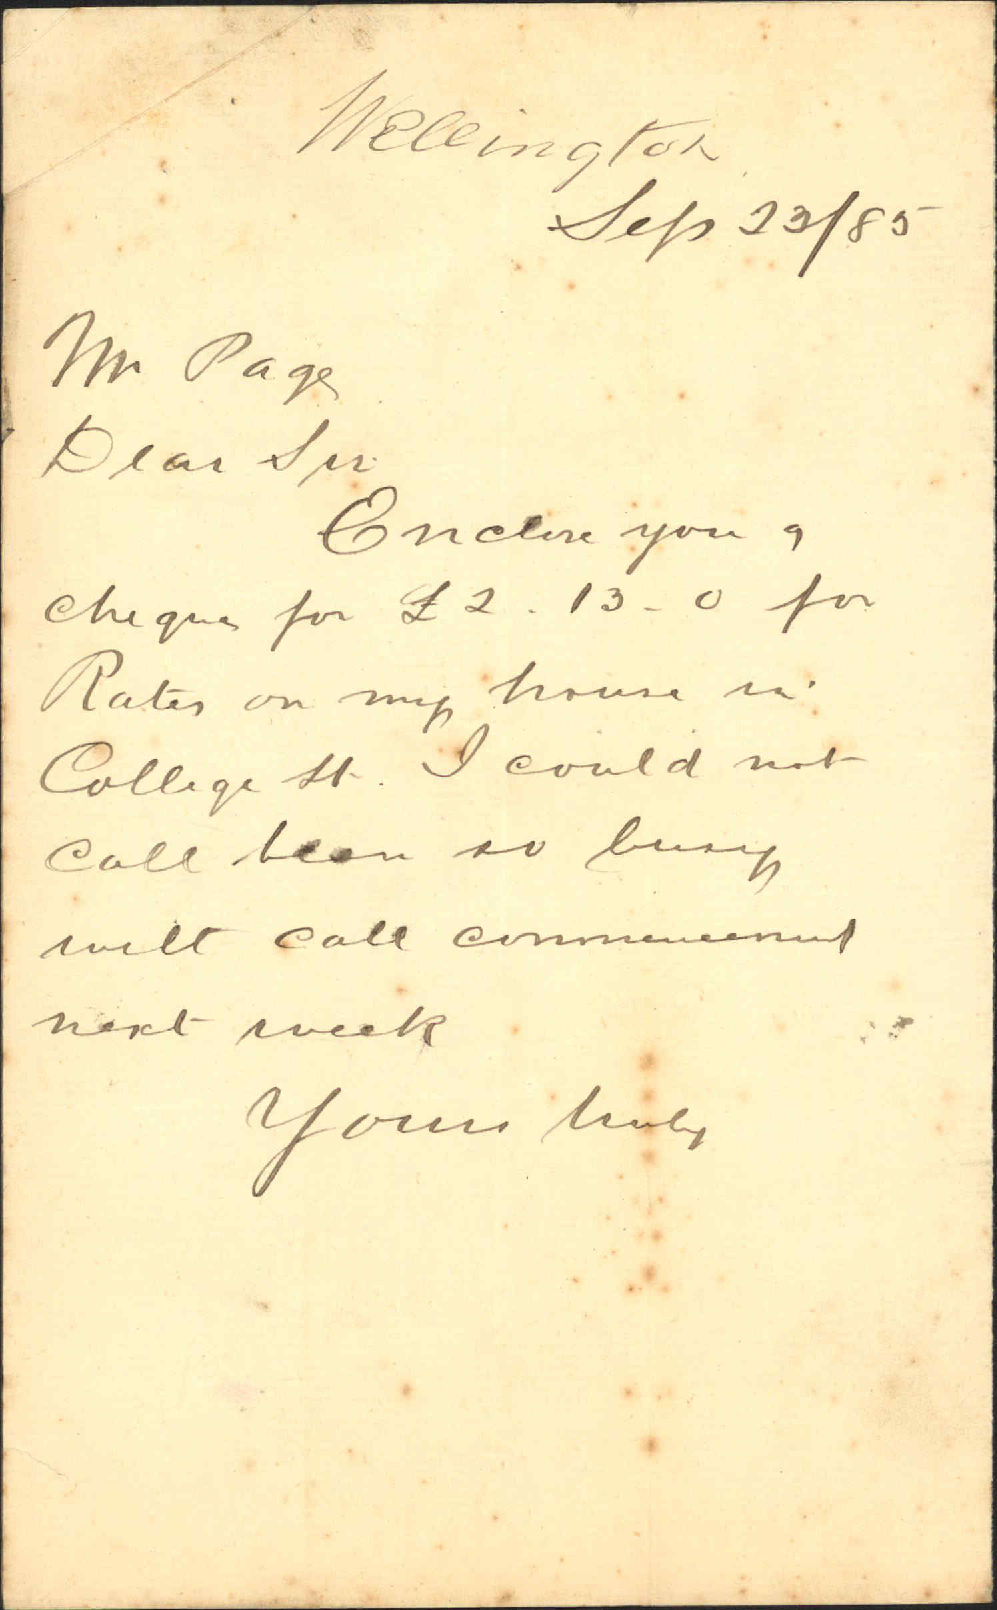 Wellington
Sep 23/85
Mr Page
Dear Sir
Enclose you a
cheque for £2-13-0 for
Rates on my house in
College St. I could not
call been so busy
will call commencement
next week
Yours truly